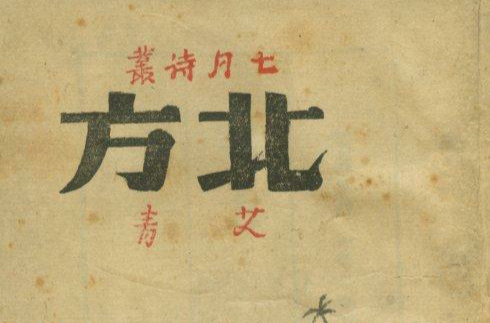 七月诗叢
北方
艾青